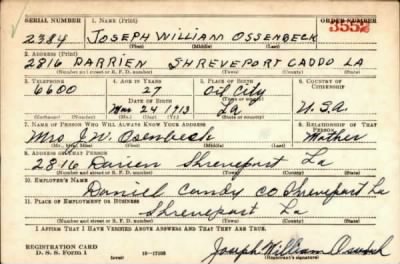 SERIAL NUMBER 1. NAME (Print) ORDER NUMBER
2384 JOSEPH WILLIAM OSSENBECK 3552
(First) (Middle) (Last)
2. ADDRESS (Print)
2816 DARRIEN SHREVEPORT CADDO LA
(Number and street or R. F. D. number) (Town) (County) (State)
3. TELEPHONE 4. AGE IN YEARS 5. PLACE OF BIRTH 6. COUNTRY OF CITIZENSHIP
6600 27 Oil City
DATE OF BIRTH
24 1913 La U.S.A.
(Mo.) (Day) (Yr.) (State or country)
7. NAME OF PERSON WHO WILL ALWAYS KNOW YOUR ADDRESS 8. RELATIONSHIP OF THAT PERSON
Mrs J.W. Osenbeck Mother
(Mr., Mrs., Miss) (First) (Middle) (Last)
9. ADDRESS OF THAT PERSON
2816 Darien Shreveport La
(Number and street or R. F. D. number) (Town) (County) (State)
10. EMPLOYER'S NAME
Daniel Candy Co Shreveport La
11. PLACE OF EMPLOYMENT OR BUSINESS
Shreveport La
(Number and street or R. F. D. number) (Town) (County) (State)
I AFFIRM THAT I HAVE VERIFIED ABOVE ANSWERS AND THAT THEY ARE TRUE.
REGISTRATION CARD
D. S. S. Form 1 (over) 16-17105 Joseph William
(Registrant's signature)